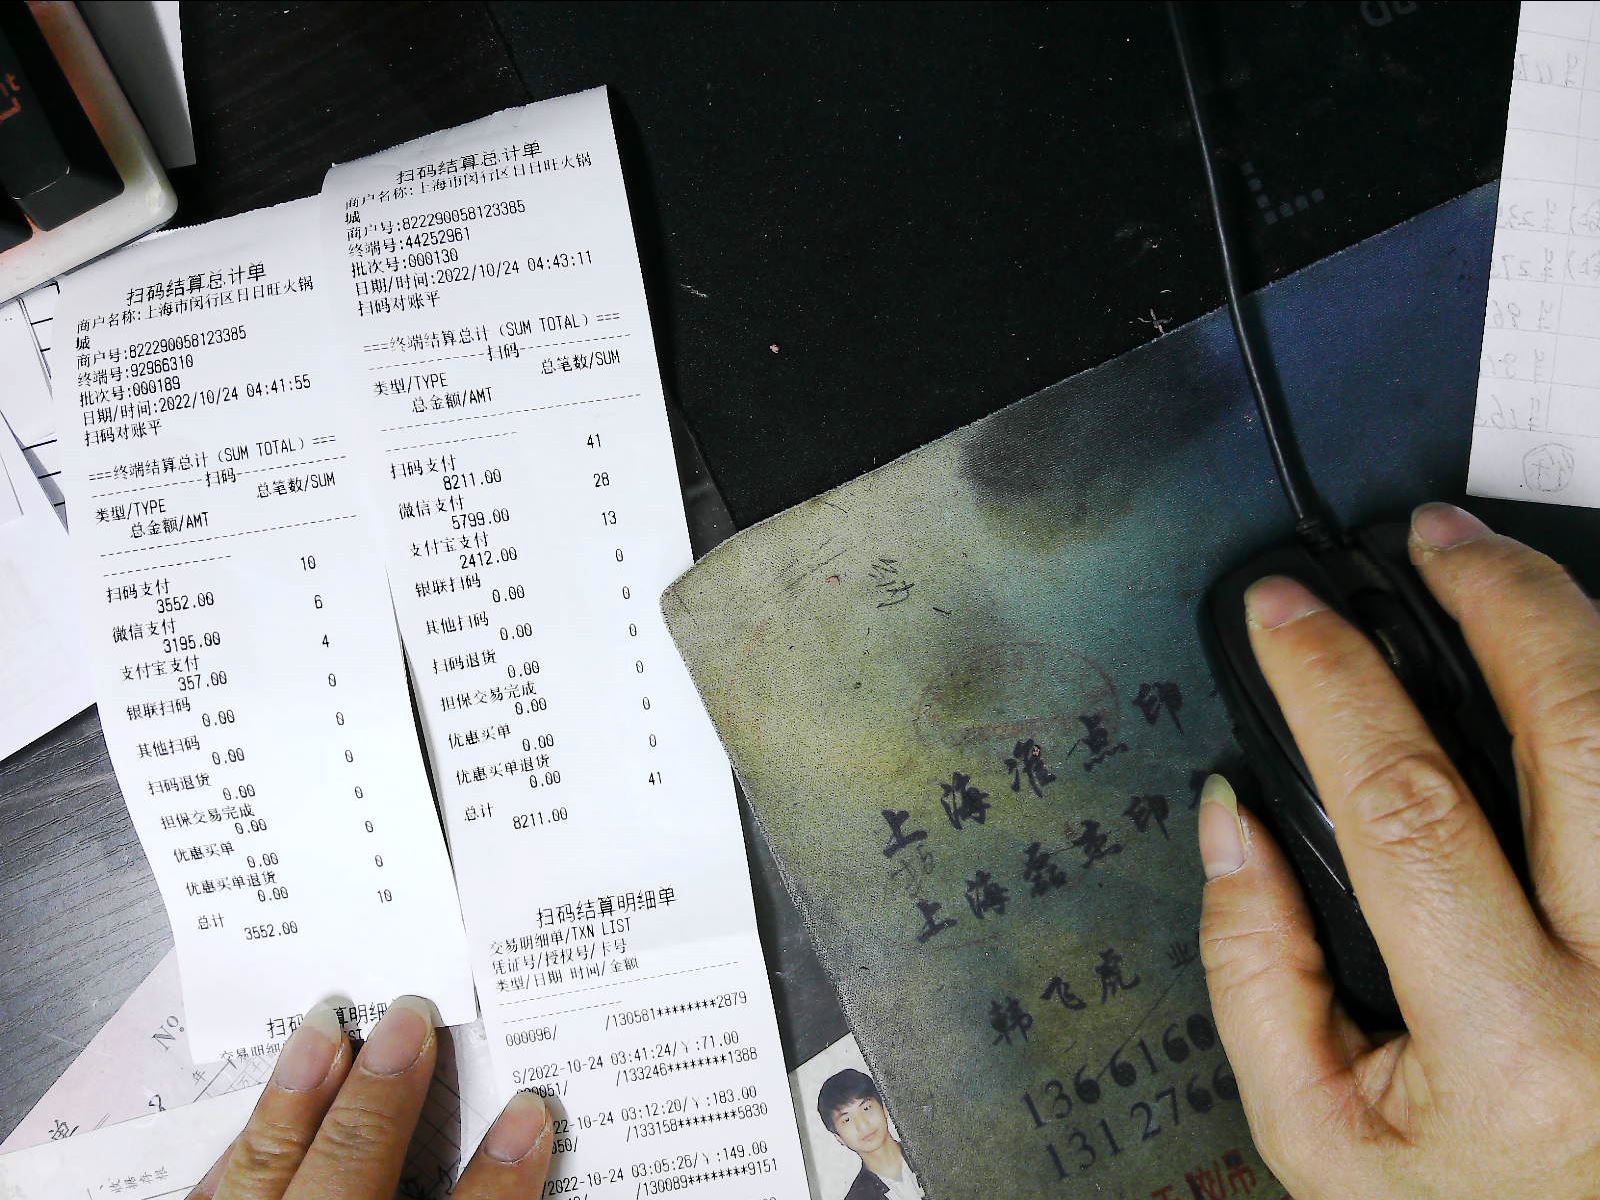 扫码结算总计单
商户名称:上海市闵行区日日旺火锅
城
商户号:822290058123385
终端号:92966310
批次号:000189
日期/时间:2022/10/24 04:41:55
扫码对账平
===终端结算总计(SUM TOTAL)===
扫码
类型/TYPE 总笔数/SUM
总金额/AMT
扫码支付 10
3552.00
微信支付 6
3195.00
支付宝支付 4
357.00
银联扫码 0
0.00
其他扫码 0
0.00
扫码退货 0
0.00
担保交易完成 0
0.00
优惠买单 0
0.00
优惠买单退货 0
0.00
总计 10
3552.00
扫码结算总计单
商户名称:上海市闵行区日日旺火锅
城
商户号:822290058123385
终端号:44252961
批次号:000130
日期/时间:2022/10/24 04:43:11
扫码对账平
===终端结算总计(SUM TOTAL)===
扫码
类型/TYPE 总笔数/SUM
总金额/AMT
扫码支付 41
8211.00
微信支付 28
5799.00
支付宝支付 13
2412.00
银联扫码 0
0.00
其他扫码 0
0.00
扫码退货 0
0.00
担保交易完成 0
0.00
优惠买单 0
0.00
优惠买单退货 0
0.00
总计 41
8211.00
扫码结算明细单
交易明细单/TXN LIST
凭证号/授权号/卡号
类型/日期 时间/金额
000096/ /130581********2879
S/2022-10-24 03:41:24/￥:71.00
/133246********1388
22-10-24 03:12:20/￥:183.00
050/ /133158********5830
/2022-10-24 03:05:26/￥:149.00
/130089********9151
扫 算明细
交易明细
No.
上海准点印
上海磊杰印
韩飞虎 业
136 6160
131 2766